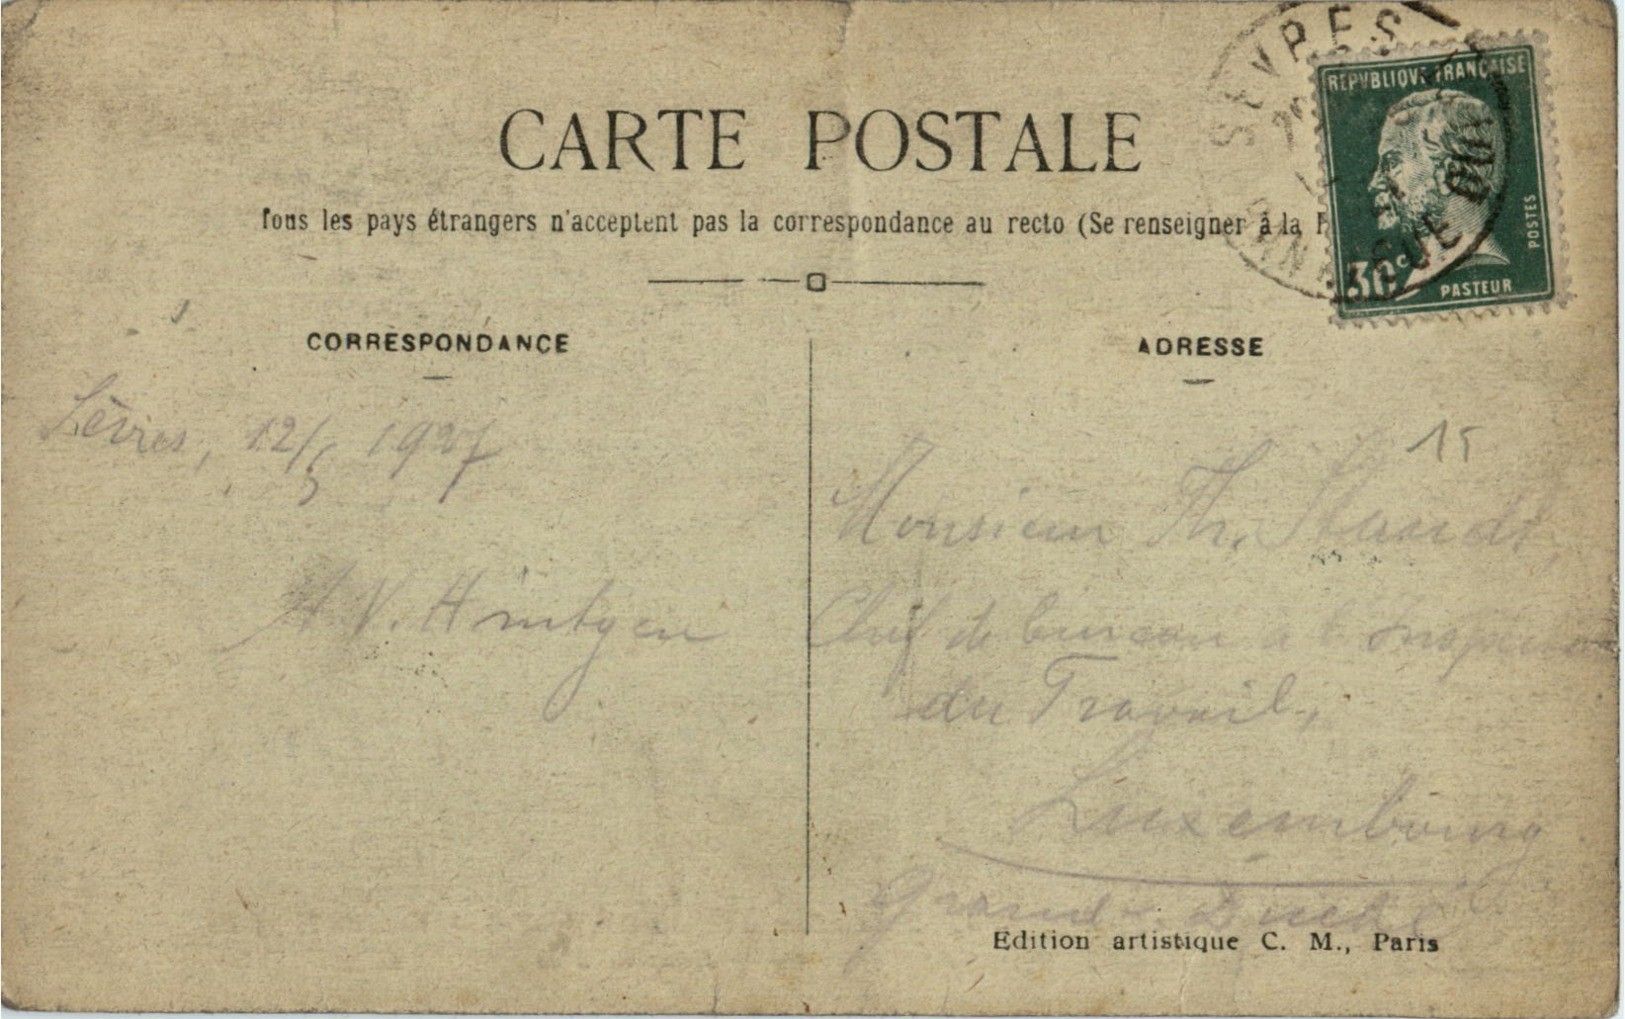 SEVRES
REPVBLIQVE FRANÇAISE
POSTES
30c
PASTEUR
CARTE POSTALE
Tous les pays étrangers n'acceptent pas la correspondance au recto (Se renseigner à la
CORRESPONDANCE
Sèvres, 12/5 1927
ADRESSE
15
Monsieur Th. Staudt,
Chef de bureau à l'Inspection
du Travail,
Luxembourg
Grand-Duché
Edition artistique C. M., Paris